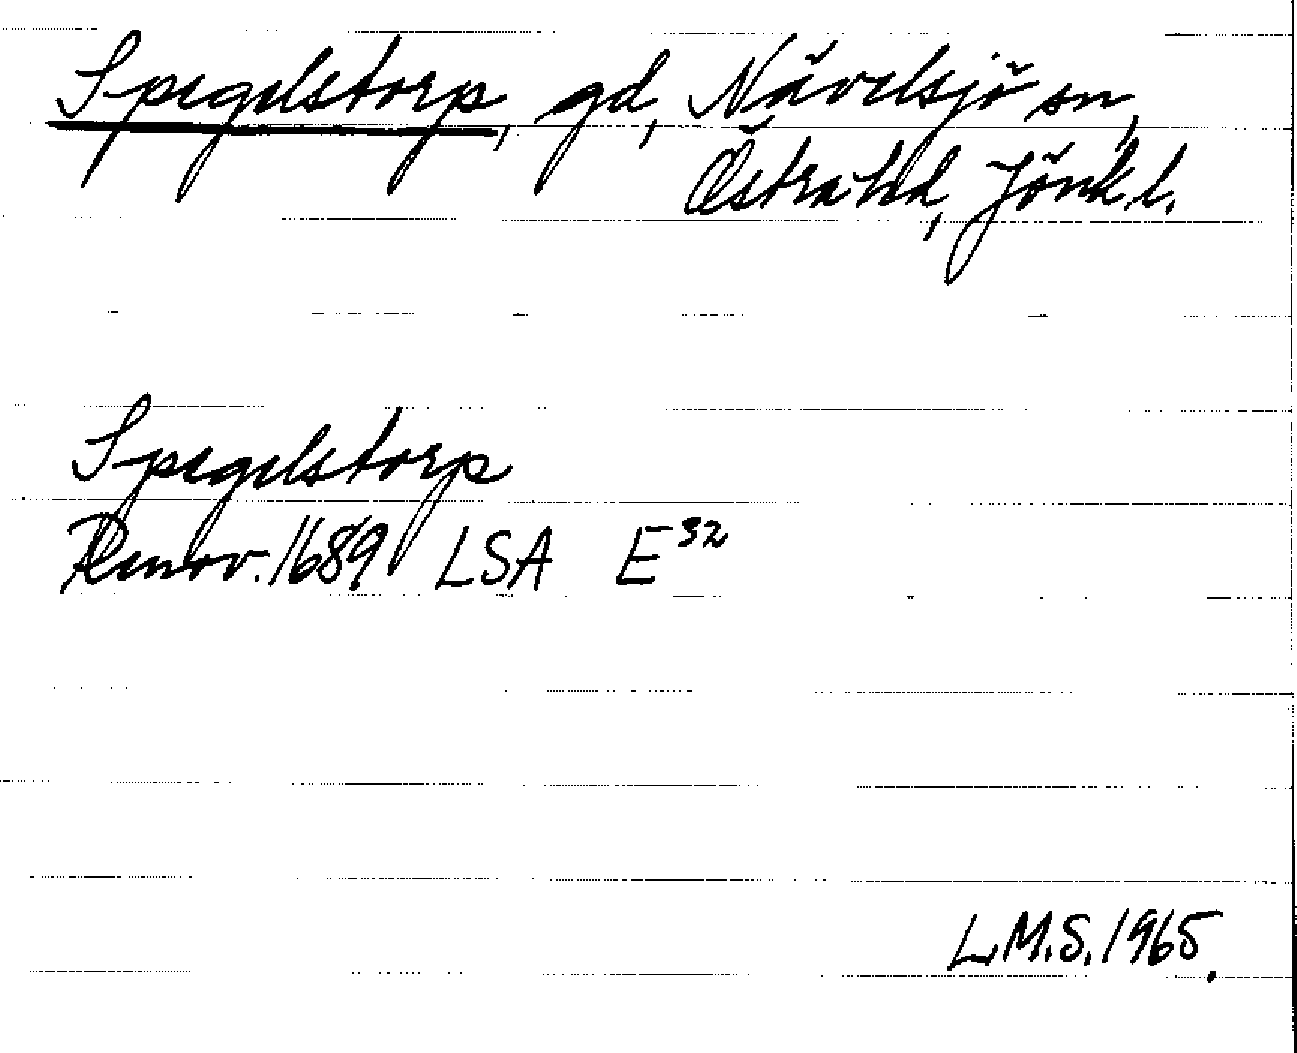 Spegelstorp, gd, Nävelsjö sn,
Östra hd, Jönk. l.
Spegelstorp
Renov. 1689 LSA E³²
L.M.S. 1965.